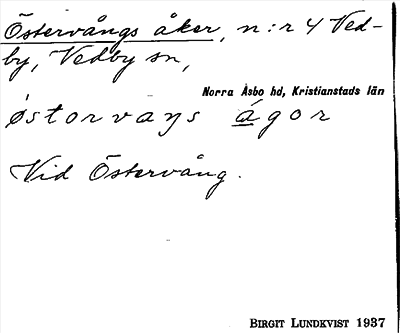 Östervångs åker, n:r 4 Ved-
by, Vedby sn,
Norra Åsbo hd, Kristianstads län
østorvaŋs ágor
Vid Östervång.
BIRGIT LUNDKVIST 1937